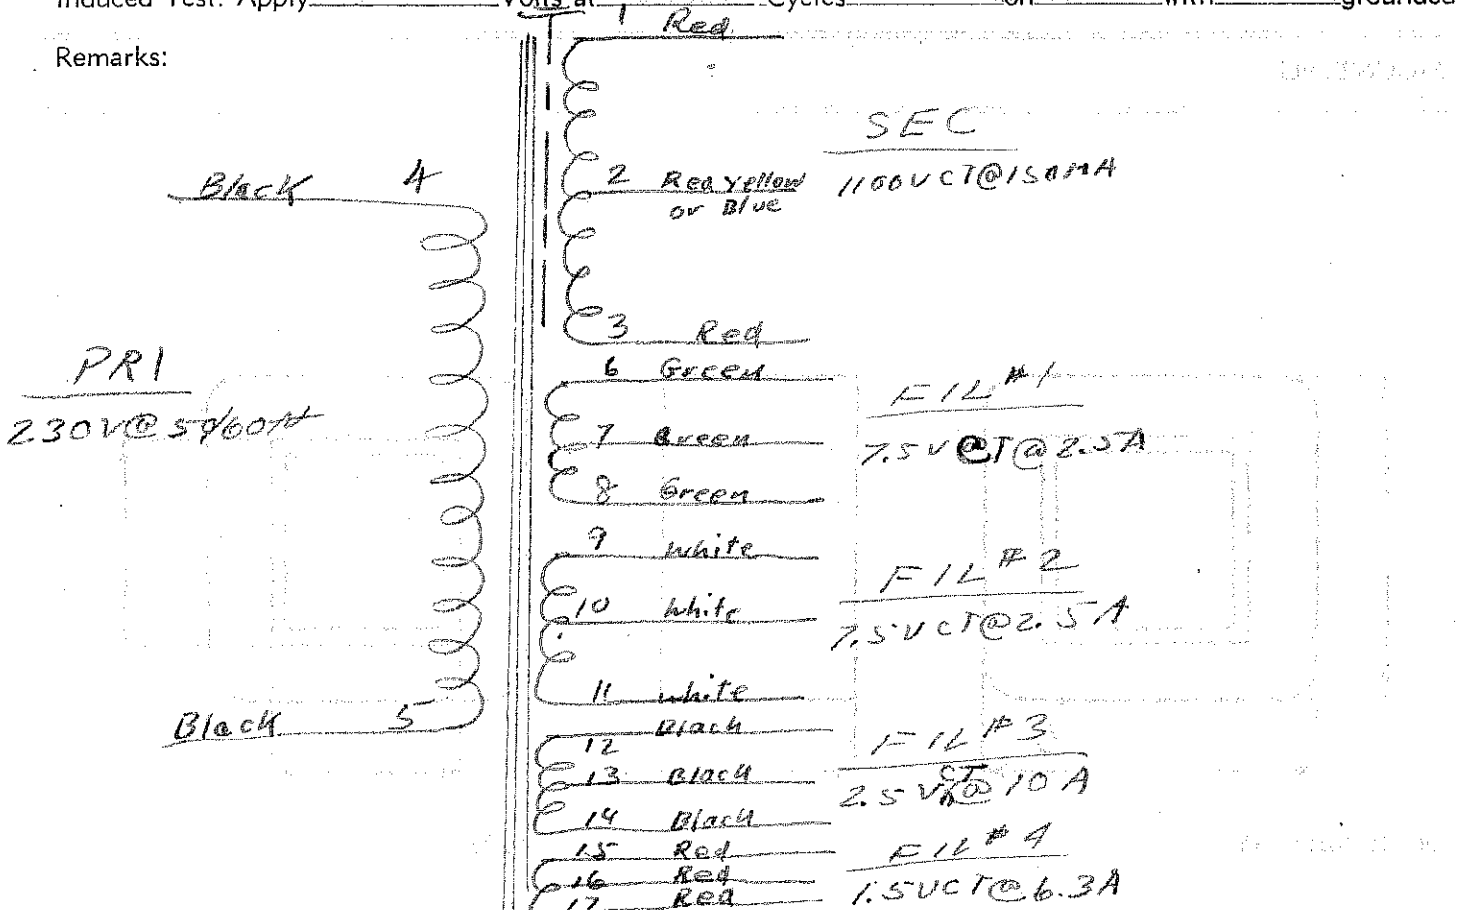 Induced Test: Apply Volts at Cycles on with grounded
Remarks:
1 Red
SEC
1100VCT@150MA
Black 4
2 Red Yellow
or Blue
3 Red
PRI
230V@50/60~
6 Green
7 Green
8 Green
FIL #1
7.5VCT@2.5A
9 White
10 White
11 White
FIL #2
7.5VCT@2.5A
Black 5
12 Black
13 Black
14 Black
FIL #3
2.5VCT@10A
15 Red
16 Red
17 Red
FIL #4
1.5VCT@6.3A